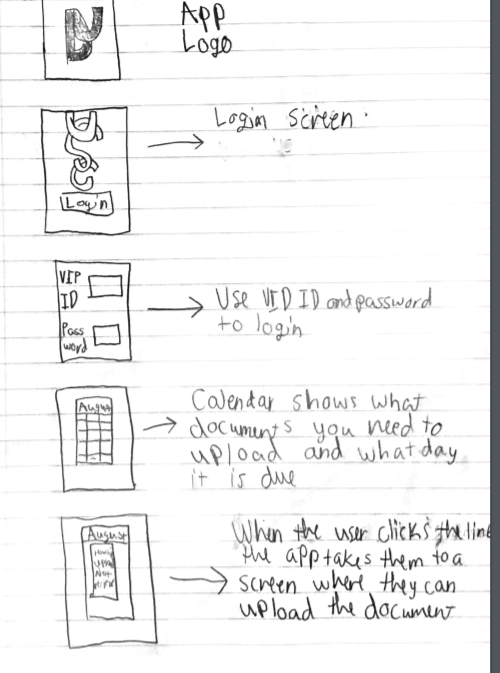 App
Logo
USC
Login
Login screen.
VIP
ID
Pass
word
Use VID ID and password
to login
August
Calendar shows what
documents you need to
upload and what day
it is due
August
When the user clicks the link
the app takes them to a
screen where they can
upload the document